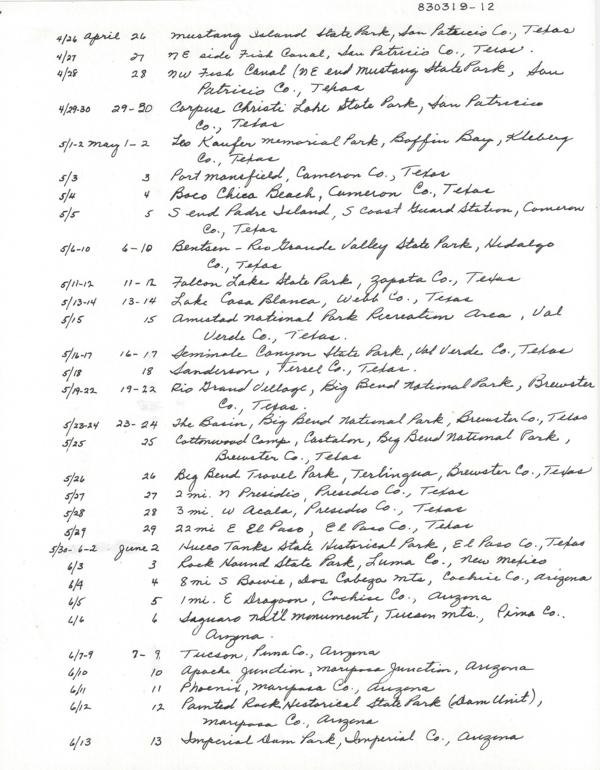 830319-12
4/26 April 26 Mustang Island State Park, San Patricio Co., Texas
4/27 27 NE side Fish Canal, San Patricio Co., Texas.
4/28 28 NW Fish Canal (NE end Mustang State Park, San
Patricio Co., Texas
4/29-30 29-30 Corpus Christi Lake State Park, San Patricio
Co., Texas
5/1-2 May 1-2 Leo Kaufer Memorial Park, Baffin Bay, Kleberg
Co., Texas
5/3 3 Port Mansfield, Cameron Co., Texas
5/4 4 Boca Chica Beach, Cameron Co., Texas
5/5 5 S end Padre Island, S Coast Guard Station, Cameron
Co., Texas
5/6-10 6-10 Bentsen-Rio Grande Valley State Park, Hidalgo
Co., Texas
5/11-12 11-12 Falcon Lake State Park, Zapata Co., Texas
5/13-14 13-14 Lake Casa Blanca, Webb Co., Texas
5/15 15 Amistad National Park Recreation Area, Val
Verde Co., Texas.
5/16-17 16-17 Seminole Canyon State Park, Val Verde Co., Texas
5/18 18 Sanderson, Tersel Co., Texas.
5/19-22 19-22 Rio Grand Village, Big Bend National Park, Brewster
Co., Texas.
5/23-24 23-24 The Basin, Big Bend National Park, Brewster Co., Texas
5/25 25 Cottonwood Camp, Castalon, Big Bend National Park,
Brewster Co., Texas
5/26 26 Big Bend Travel Park, Terlingua, Brewster Co., Texas
5/27 27 2 mi. N Presidio, Presidio Co., Texas
5/28 28 3 mi. W Acala, Presidio Co., Texas
5/29 29 22 mi E El Paso, El Paso Co., Texas
5/30-6-2 June 2 Hueco Tanks State Historical Park, El Paso Co., Texas
6/3 3 Rock Hound State Park, Luma Co., New Mexico
6/4 4 8 mi S Bowie, Dos Cabeza Mts, Cochise Co., Arizona
6/5 5 1 mi. E Dragoon, Cochise Co., Arizona
6/6 6 Saguaro Nat'l Monument, Tucson Mts., Pima Co.,
Arizona.
6/7-9 7-9 Tucson, Pima Co., Arizona
6/10 10 Apache Junction, Mariposa Junction, Arizona
6/11 11 Phoenix, Mariposa Co., Arizona
6/12 12 Painted Rock Historical State Park (Dam Unit),
Mariposa Co., Arizona
6/13 13 Imperial Dam Park, Imperial Co., Arizona